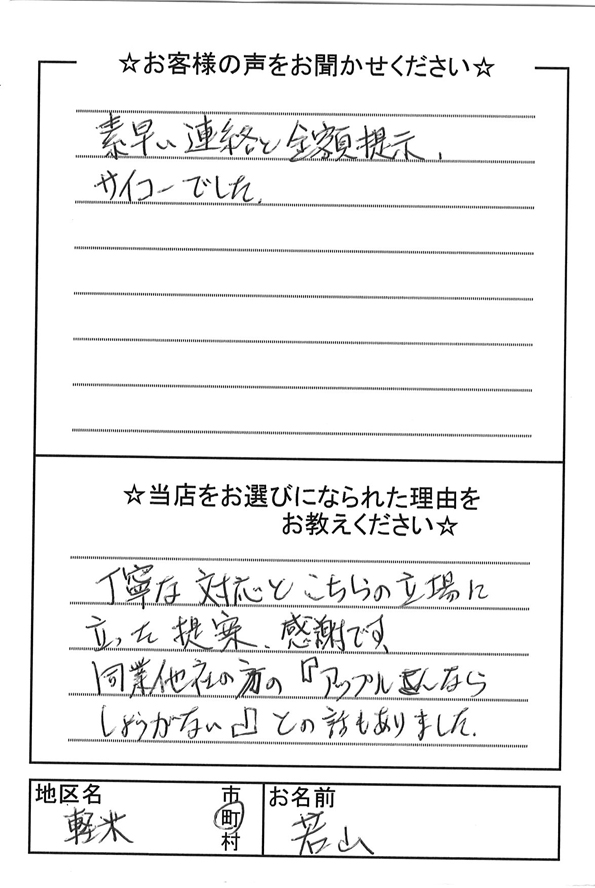 ☆お客様の声をお聞かせください☆
素早い連絡と金額提示、
サイコーでした。
☆当店をお選びになられた理由を
お教えください☆
丁寧な対応とこちらの立場に
立った提案、感謝です。
同業他社の方の『アップルさんなら
しょうがない』との話もありました。
地区名 市 お名前
軽米 町 若山
村